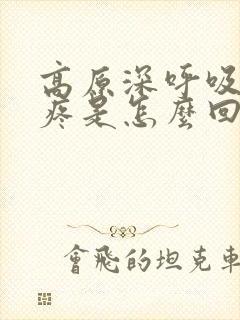 高原深呼吸
疼是怎麼回
會飛的坦克車